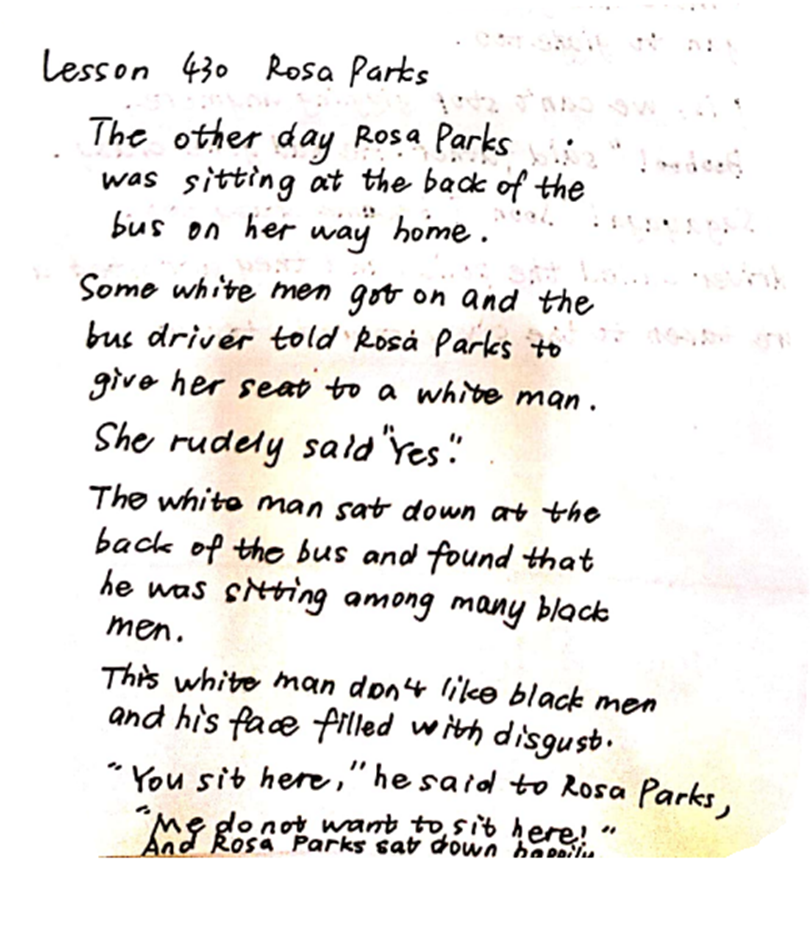 Lesson 430 Rosa Parks
The other day Rosa Parks
was sitting at the back of the
bus on her way" home.
Some white men got on and the
bus driver told Rosa Parks to
give her seat to a white man.
She rudely said "Yes".
The white man sat down at the
back of the bus and found that
he was sitting among many black
men.
This white man don't like black men
and his face filled with disgust.
"You sit here," he said to Rosa Parks,
"Me do not want to sit here! "
And Rosa Parks sat down happily